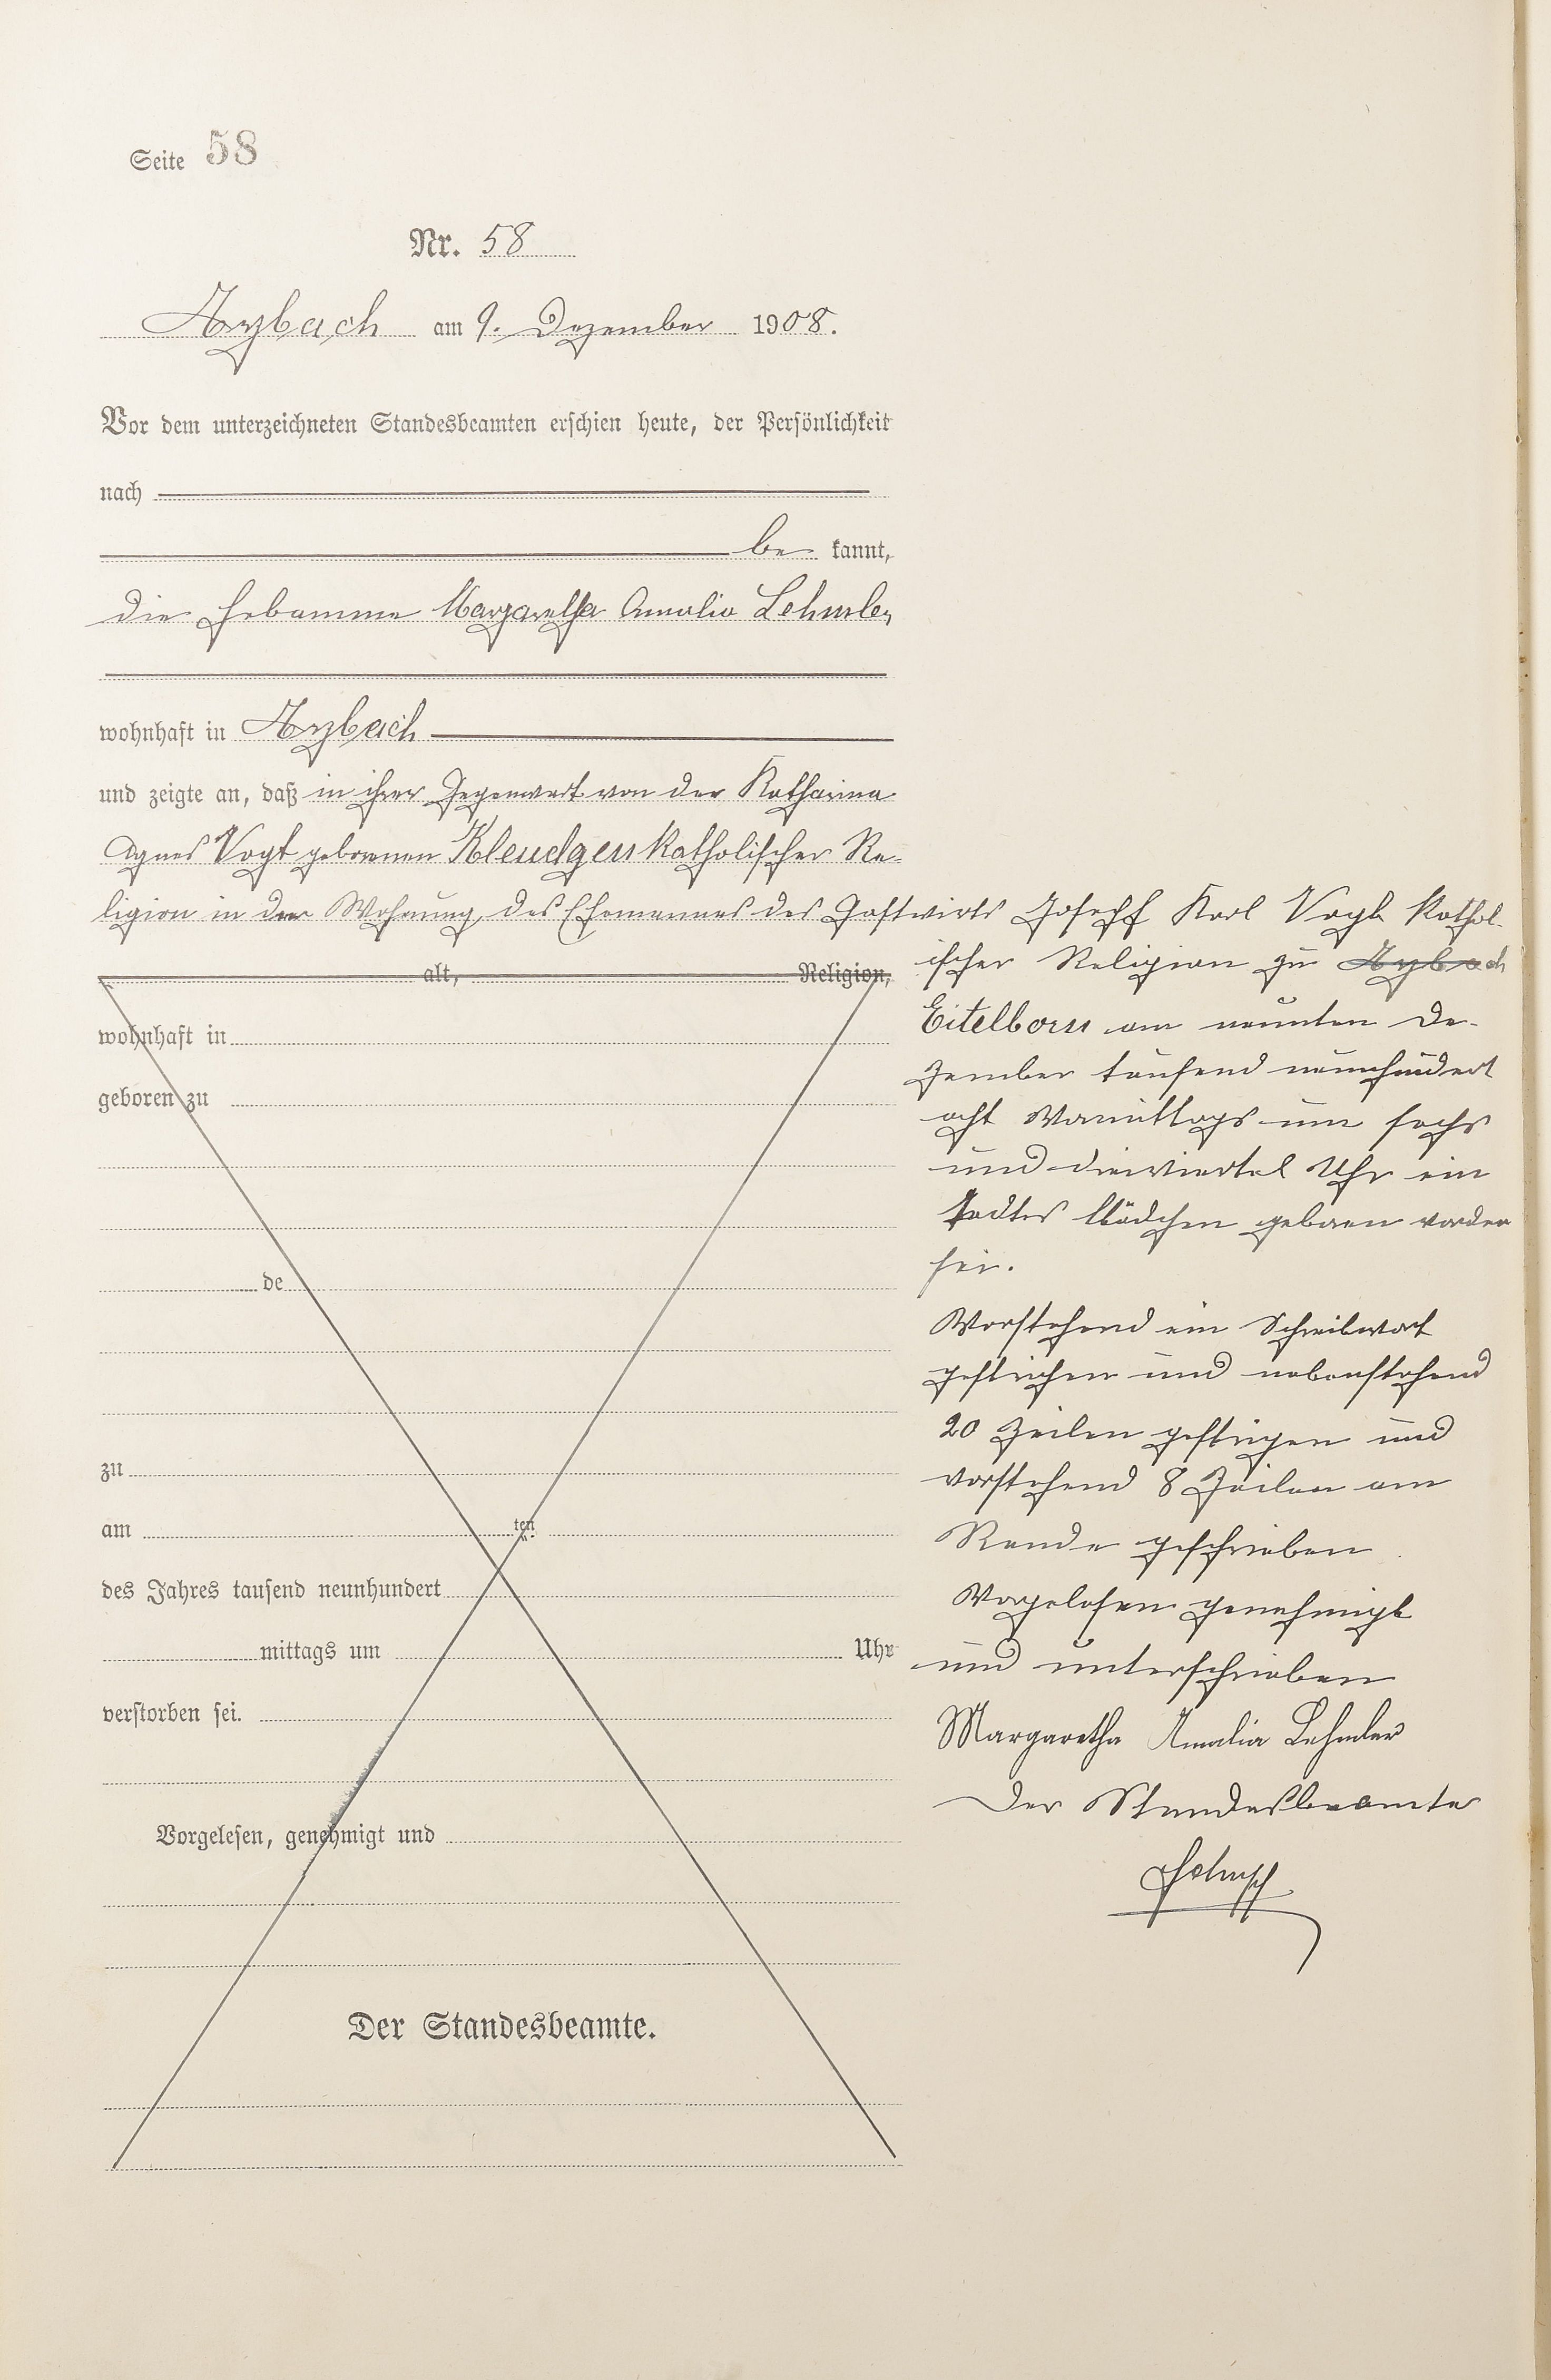 Seite 58
Nr. 58
Arzbach am 9. Dezember 1908.
Vor dem unterzeichneten Standesbeamten erschien heute, der Persönlichkeit
nach
be kannt,
die Hebamme Margaretha Amalia Lehmler,
wohnhaft in Arzbach
und zeigte an, daß in ihrer Gegenwart von der Katharina
Agnes Vogt geborenen Kleudgen katholischer Re-
ligion in der Wohnung des Ehemannes des Gastwirts Joseph Karl Vogt kathol-
ischer Religion zu Arzbach
Eitelborn am neunten De-
zember tausend neunhundert
acht Vormittags um sechs
und dreiviertel Uhr ein
todtes Mädchen geboren worden
sei.
Vorstehend ein Schreibwort
gestrichen und nebenstehend
20 Zeilen gestrichen und
vorstehend 8 Zeilen am
Rande geschrieben
Vorgelesen genehmigt
und unterschrieben
Margaretha Amalia Lehmler
Der Standesbeamte
alt, Religion,
wohnhaft in
geboren zu
de
zu
am ten
des Jahres tausend neunhundert
mittags um Uhr
verstorben sei.
Vorgelesen, genehmigt und
Der Standesbeamte.